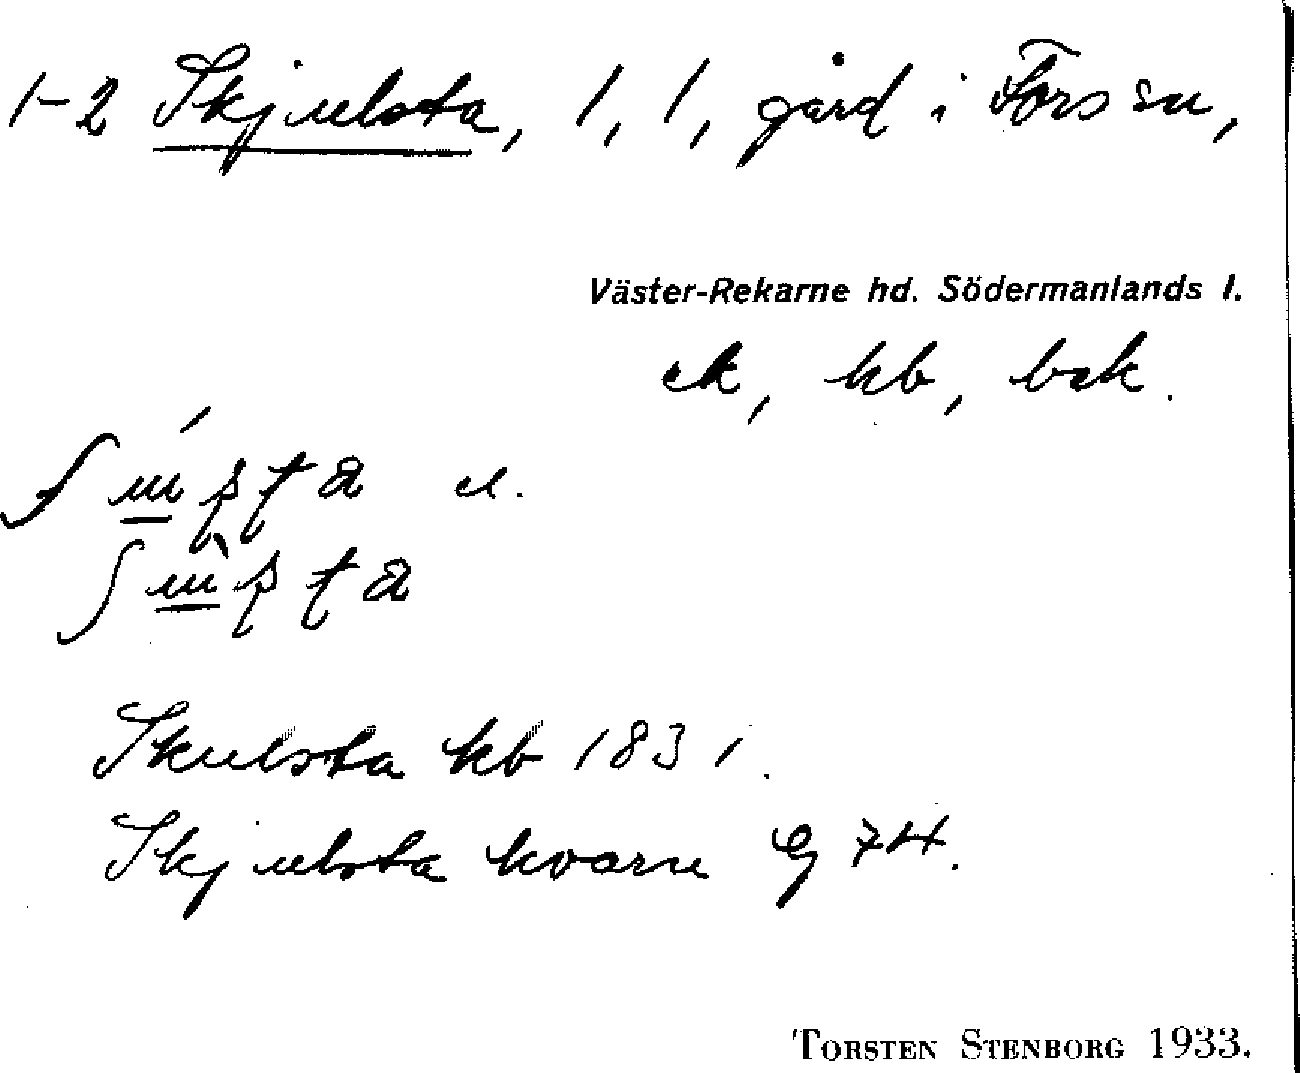 1-2 Skjulsta, 1, 1, gård i Fors sn,
Väster-Rekarne hd. Södermanlands l.
ek, kb, bsk.
Skulsta kb 1831.
Skjulsta kvarn G 74.
TORSTEN STENBORG 1933.